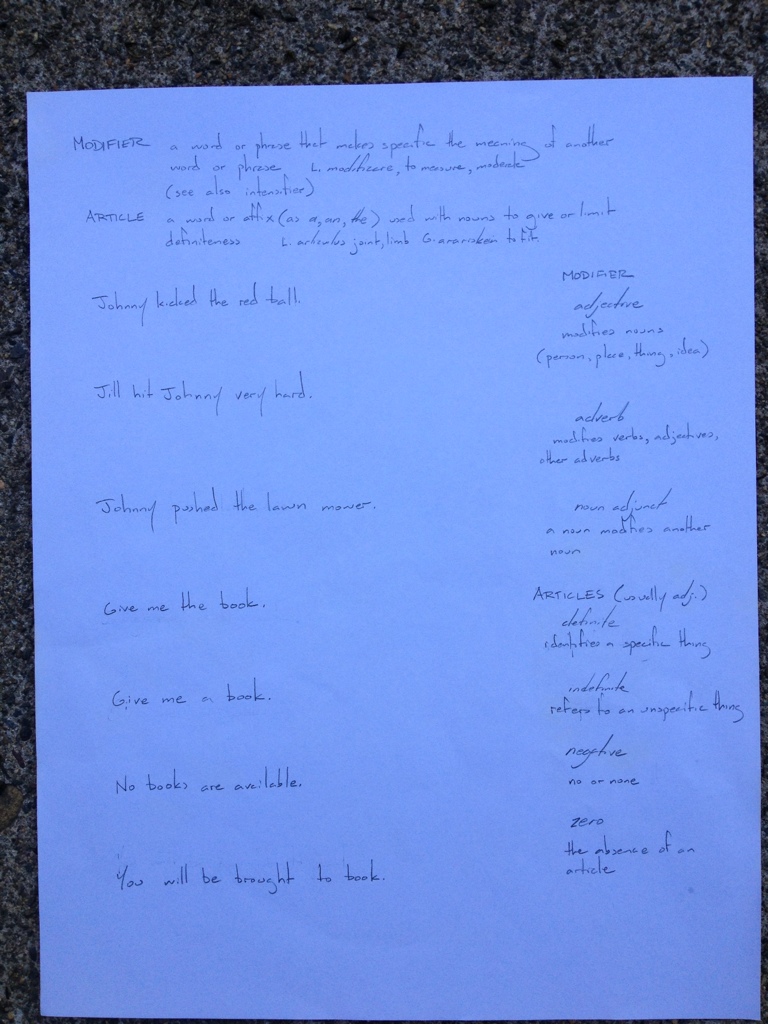 MODIFIER a word or phrase that makes specific the meaning of another
word or phrase L. modificare, to measure, moderate
(see also intensifier)
ARTICLE a word or affix (as a, an, the) used with nouns to give or limit
definiteness L. articulus joint, limb G. to fit
MODIFIER
Johnny kicked the red ball.
adjective
modifies nouns
(person, place, thing, idea)
Jill hit Johnny very hard.
adverb
modifies verbs, adjectives,
other adverbs
Johnny pushed the lawn mower.
noun adjunct
a noun modifies another
noun
ARTICLES (usually adj.)
Give me the book.
definite
identifies a specific thing
Give me a book.
indefinite
refers to an unspecific thing
negative
No books are available.
no or none
zero
the absence of an
article
You will be brought to book.